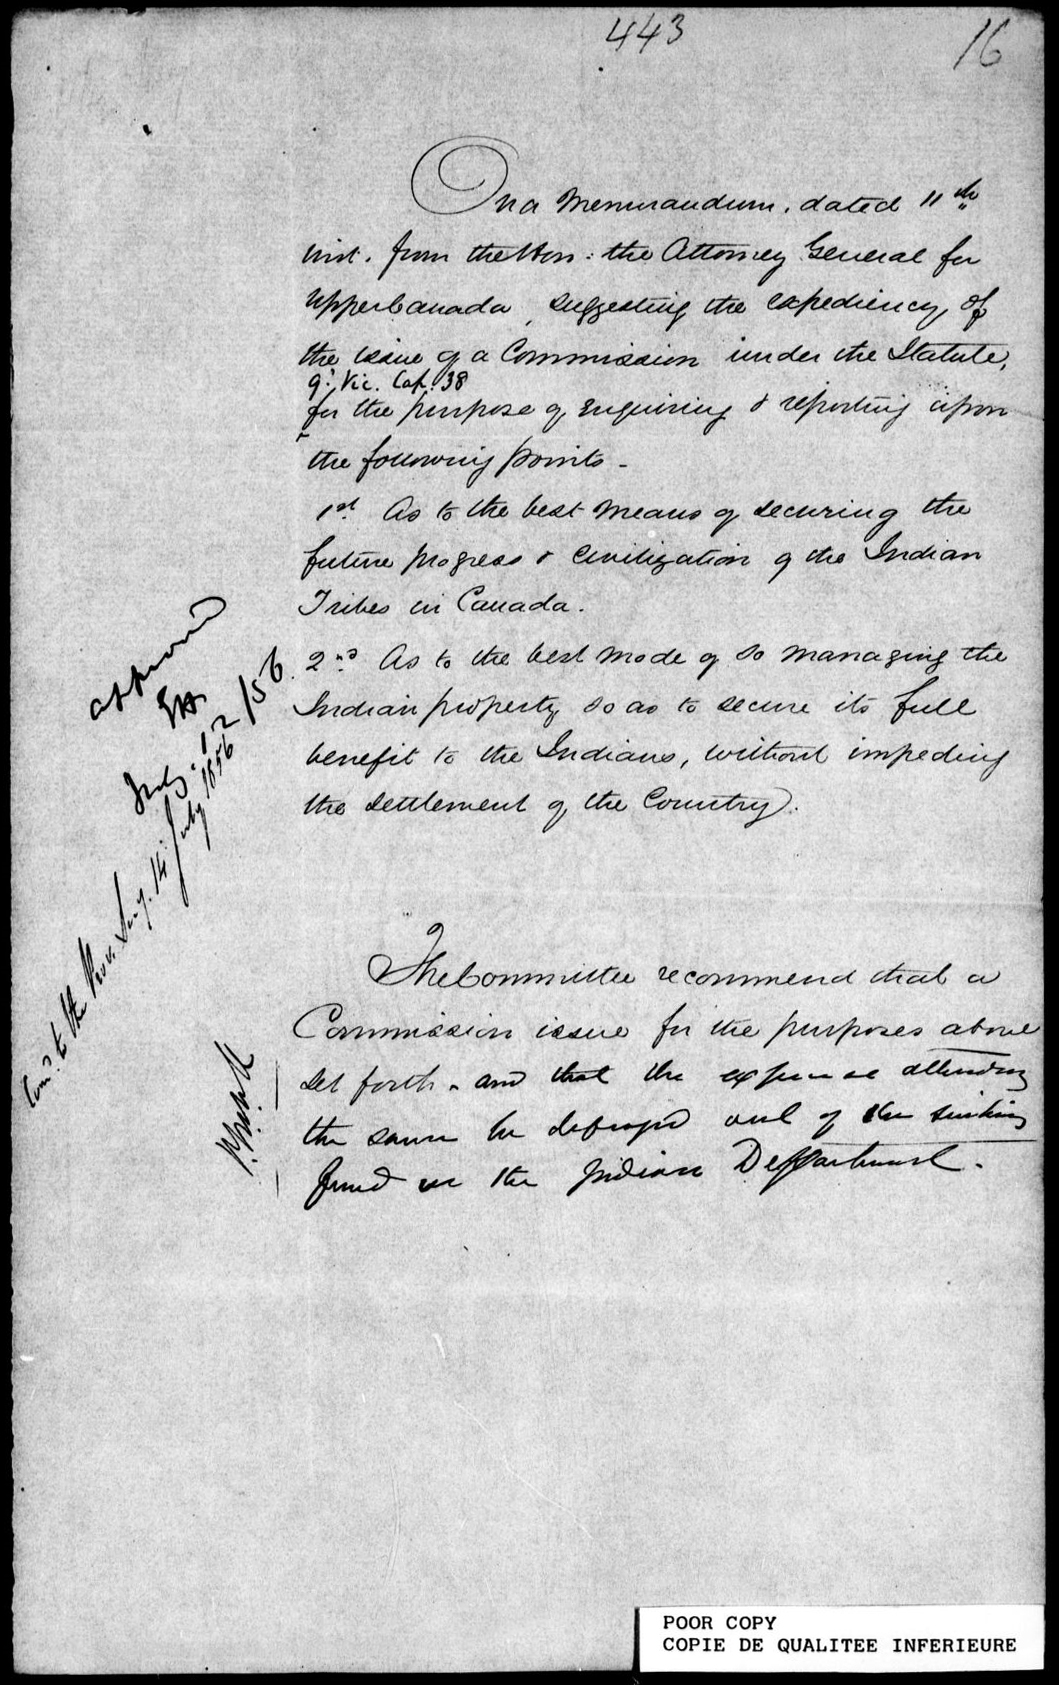 443
16
On a Memorandum, dated 11th
inst. from the Hon: the Attorney General for
Upper Canada, suggesting the expediency of
the issue of a Commission under the Statute,
9: Vic. Cap. 38
for the purpose of enquiring & reporting upon
the following points -
1st As to the best means of securing the
future progress & civilization of the Indian
Tribes in Canada.
2nd As to the best mode of so managing the
Indian property so as to secure its full
benefit to the Indians, without impeding
the settlement of the Country.
approved
July 12/56
to the Prov. Secy. 14 July 1856
The Committee recommend that a
Commission issue for the purposes above
set forth. and that the expense attending
the same be defrayed out of the sinking
fund in the Indian Department.
POOR COPY
COPIE DE QUALITEE INFERIEURE